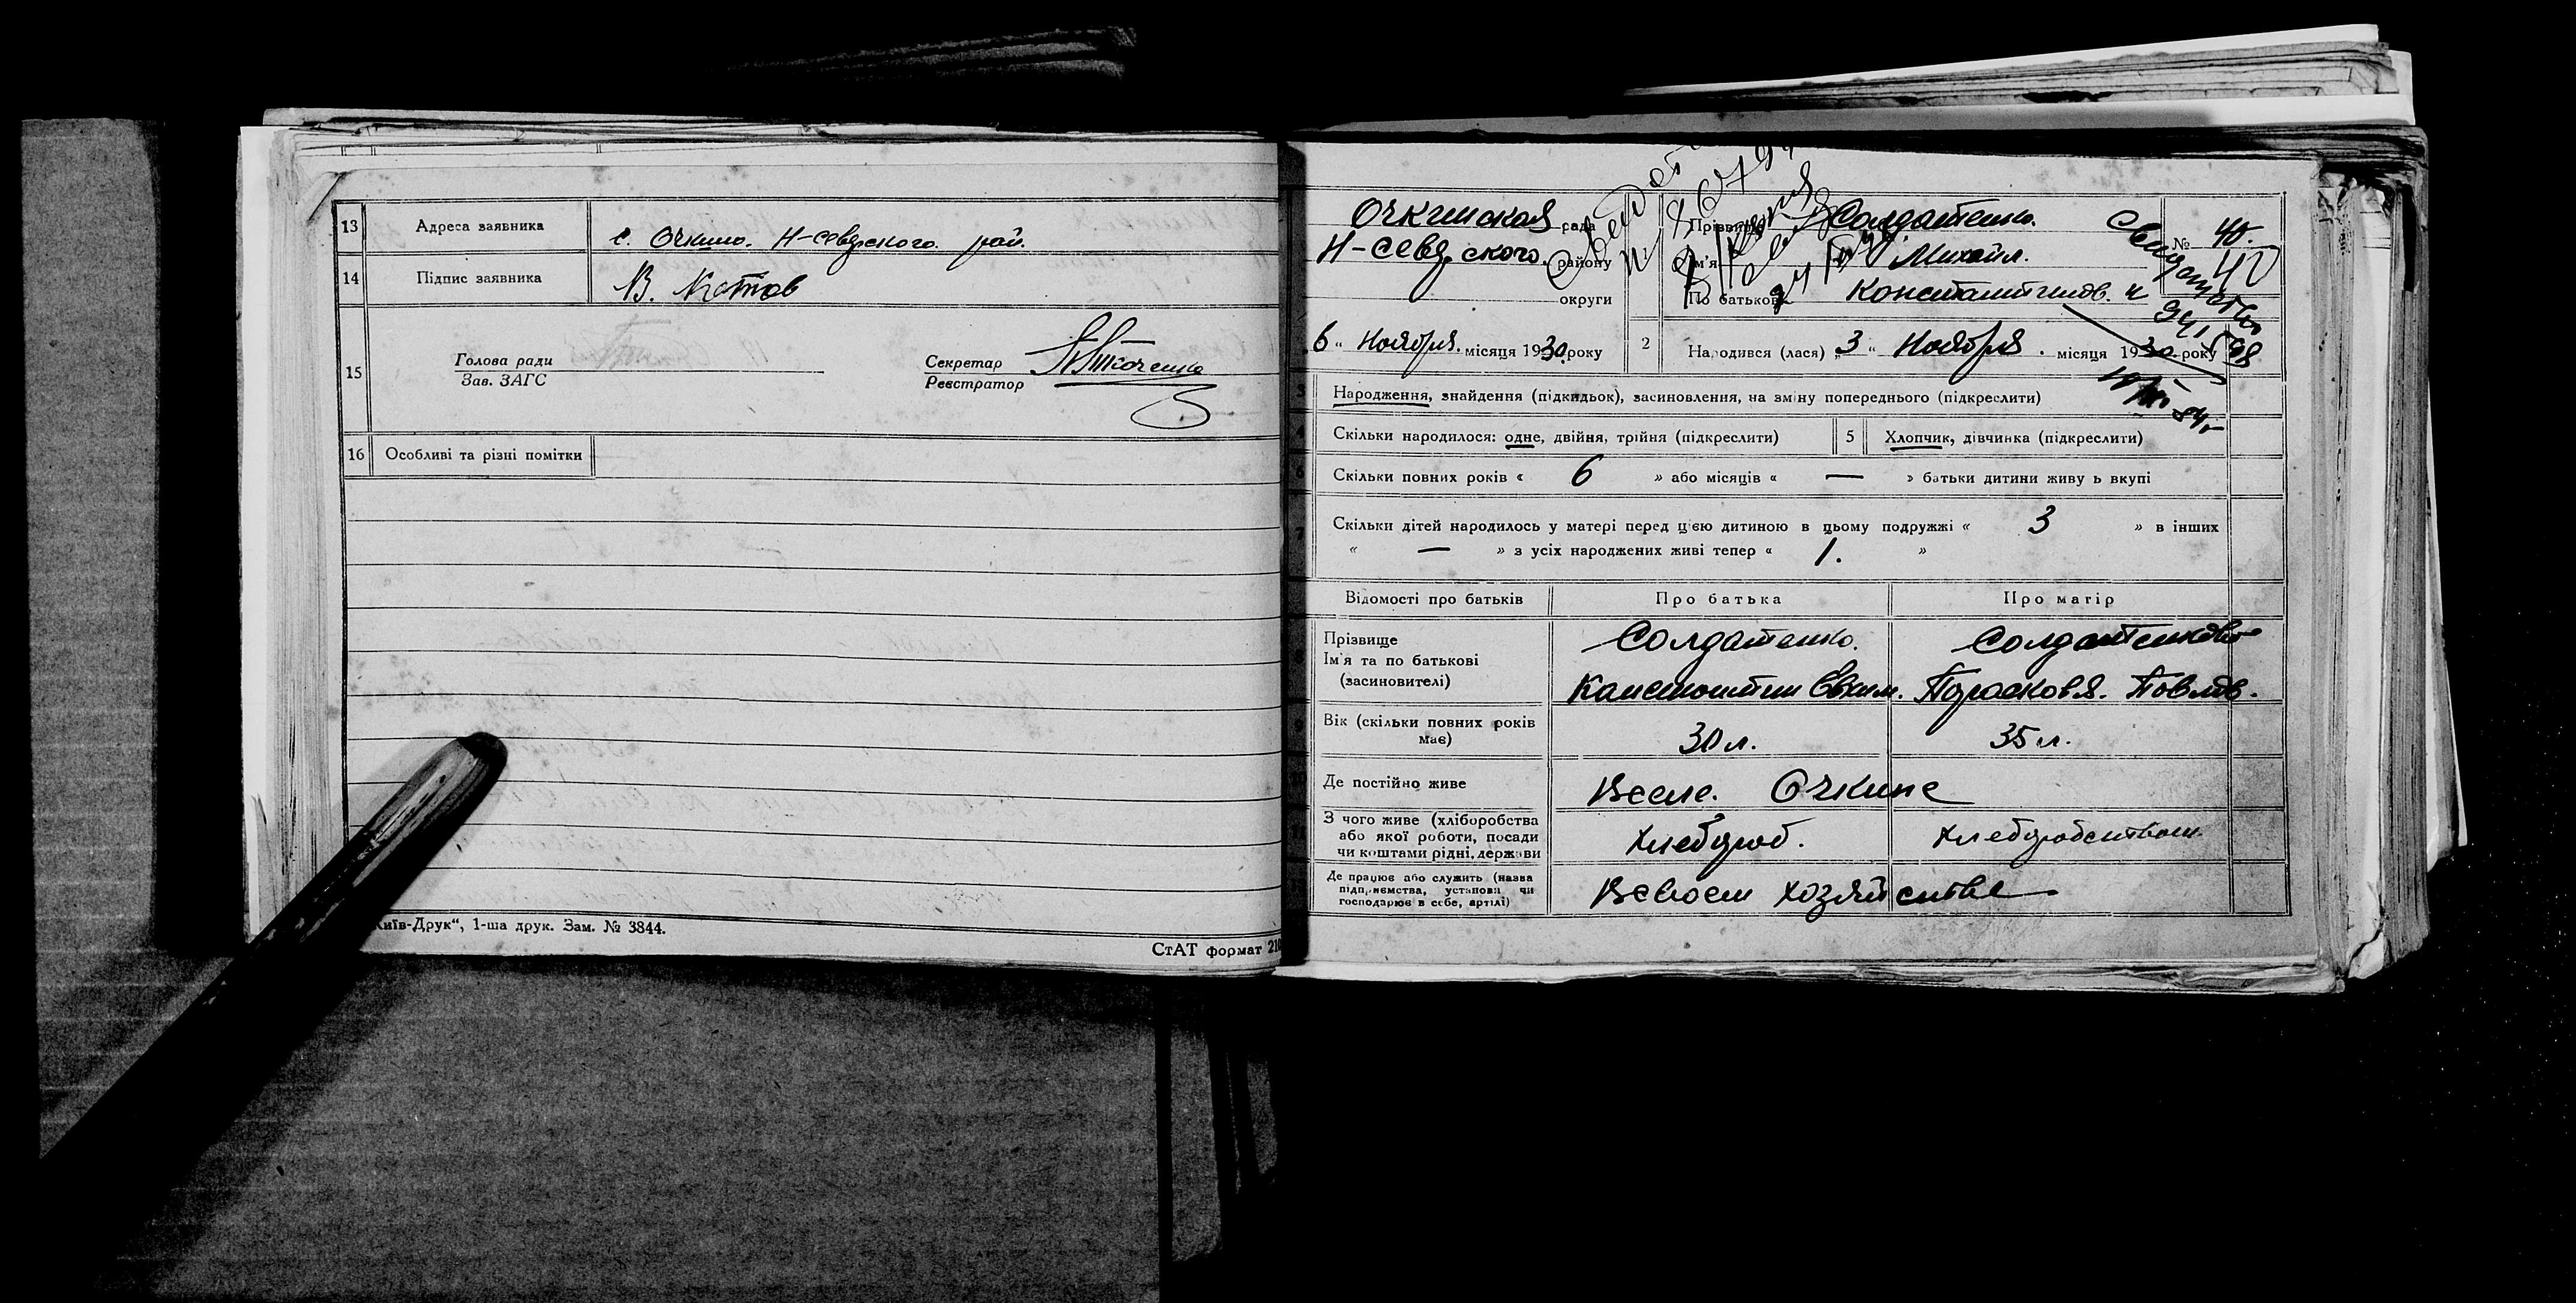 13 Адреса заявника с. Очкино. Н-севдского. рай.
14 Підпис заявника В. Котов
15 Голова ради
Зав. ЗАГС
Секретар
Реєстратор
16 Особливі та різні помітки
Київ-Друк“, 1-ша друк. Зам. № 3844.
СтАТ формат 210
Очкинская рада
Н-севдского. району
округи
6 „ Ноября. місяця 1930 року
Прізвище Солдатенко.
Ім'я Михаил.
По батькові Константинов.
№ 40.
40
Свидетельство
2 Народився (лася) „ 3 “ Ноября. місяця 1930 року
3 Народження, знайдення (підкидьок), засиновлення, на зміну попереднього (підкреслити)
4 Скільки народилося: одне, двійня, трійня (підкреслити)
5 Хлопчик, дівчинка (підкреслити)
6 Скільки повних років « 6 » або місяців « — » батьки дитини живуть вкупі
7 Скільки дітей народилось у матері перед цією дитиною в цьому подружжі « 3 » в інших
« — » з усіх народжених живі тепер « 1. »
Відомості про батьків Про батька Про матір
Прізвище Солдатенко. Солдатенкова
Ім'я та по батькові
(засиновителі) Константин Евхим. Парасковя. Павлов.
Вік (скільки повних років 30 л. 35 л.
має)
Де постійно живе Вселе. Очкине
З чого живе (хліборобства
або якої роботи, посади Хлебороб. Хлеборобством
чи коштами рідні, держави
Де працює або служить (назва
підприємства, установи чи Всвоем хозяйстве
господарює в себе, артілі)